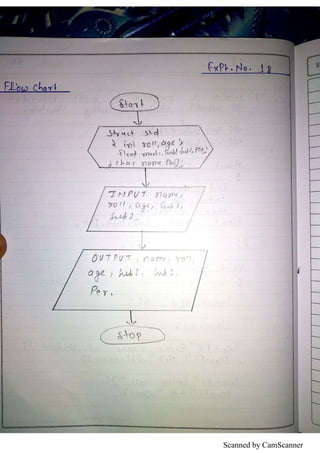 Expt. No. 18
Flow Chart
Start
struct std
{ int roll, age;
float
} char name [20];
INPUT name,
roll, age, sub1,
sub2.
OUTPUT, name, roll,
age, sub1, sub2.
Per.
Stop
Scanned by CamScanner